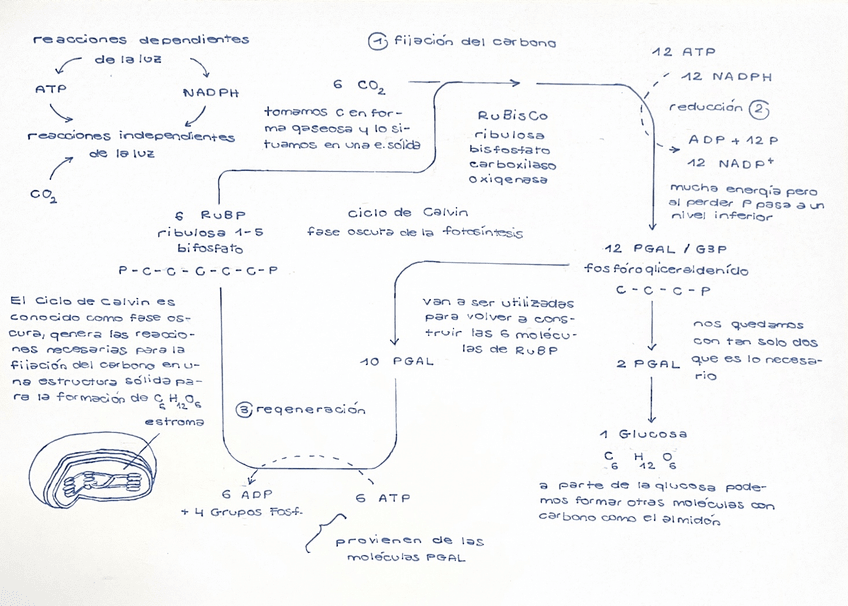 reacciones dependientes
de la luz
ATP
NADPH
reacciones independientes
de la luz
CO₂
① fijación del carbono
6 CO₂
tomamos C en for-
ma gaseosa y lo si-
tuamos en una e. sólida
RuBisCo
ribulosa
bisfosfato
carboxilasa
oxigenasa
12 ATP
12 NADPH
reducción ②
ADP + 12 P
12 NADP⁺
mucha energía pero
al perder P pasa a un
nivel inferior
6 RuBP
ribulosa 1-5
bifosfato
P-C-C-C-C-C-P
ciclo de Calvin
fase oscura de la fotosíntesis
12 PGAL / G3P
fosfórogliceraldenído
C-C-C-P
El Ciclo de Calvin es
conocido como fase os-
cura, genera las reaccio-
nes necesarias para la
fijación del carbono en u-
na estructura sólida pa-
ra la formación de C₆H₁₂O₆
estroma
van a ser utilizadas
para volver a cons-
truir las 6 molécu-
las de RuBP
10 PGAL
nos quedamos
con tan solo dos
que es lo necesa-
rio
2 PGAL
③ regeneración
1 Glucosa
C₆ H₁₂ O₆
a parte de la glucosa pode-
mos formar otras moléculas con
carbono como el almidón
6 ADP
+ 4 Grupos Fosf.
6 ATP
provienen de las
moléculas PGAL